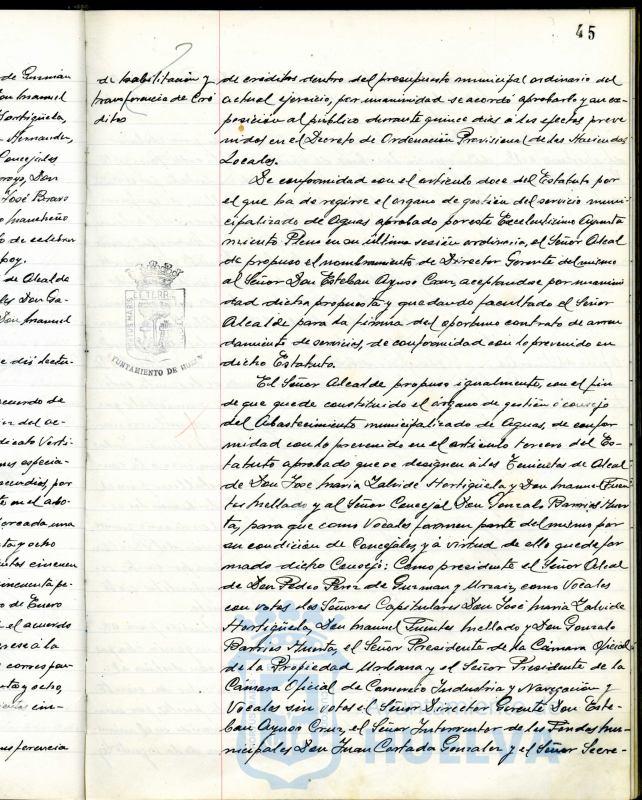 45
de Guzmán
Don Manuel
Hortigüela,
Hernandez,
Concejales
Don
José Bravo
de celebrar
de Alcalde
Don Ga-
Don Manuel
acuerdo de
del ac-
especia-
por
en el
una
y ocho
cincuen
cincuenta pe-
de Enero
el acuerdo
a la
y ocho,
cin-
de habilitación y
transferencia de Cré
ditos
EXCMO
AYUNTAMIENTO DE HUELVA
de créditos dentro del presupuesto municipal ordinario del
actual ejercicio, por unanimidad se acordó aprobarlo y su ex-
posición al público durante quince días a los efectos preve
nidos en el Decreto de Ordenación Provisional de las Haciendas
Locales.
De conformidad con el artículo doce del Estatuto por
el que ha de regirse el organo de gestión del servicio muni-
cipalizado de Aguas aprobado por este Excelentísimo Ayunta
miento Pleno en su última sesión ordinaria, el Señor Alcal
de propuso el nombramiento de Director Gerente del mismo
al Señor Don Esteban Ayuso Cruz, aceptandose por unanimi
dad dicha propuesta y quedando facultado el Señor
Alcalde para la firma del oportuno contrato de arren
damiento de servicios, de conformidad con lo prevenido en
dicho Estatuto.
El Señor Alcalde propuso igualmente, con el fin
de que quede constituido el órgano de gestión o consejo
del Abastecimiento municipalizado de Aguas, de confor
midad con lo prevenido en el artículo tercero del Es-
tatuto aprobado que se designen a los Tenientes de Alcal
de Don José Maria Zalvide Hortigüela y Don Manuel Fuen
tes Mellado y al Señor Concejal Don Gonzalo Barrios Huer
ta, para que como Vocales formen parte del mismo por
su condición de Concejales, y a virtud de ello quede for
mado dicho Consejo: Como presidente el Señor Alcal
de Don Pedro Perez de Guzman y Urzaiz, como Vocales
con votos los Señores Capitulares Don José Maria Zalvide
Hortigüela, Don Manuel Fuentes Mellado y Don Gonzalo
Barrios Huerta, el Señor Presidente de la Cámara Oficial
de la Propiedad Urbana y el Señor Presidente de la
Cámara Oficial de Comercio Industria y Navegación y
Vocales sin votos el Señor Director Gerente Don Este-
ban Ayuso Cruz, el Señor Interventor de los Fondos Mu-
nicipales Don Juan Cortada Gonzalez y el Señor Secre-
Ayuntamiento de
HUELVA